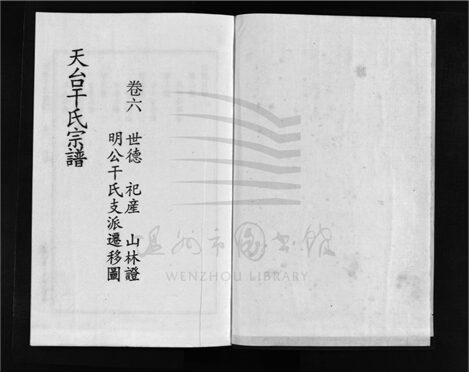 卷六 世德 祀産 山林證
明公干氏支派遷移圖
天台干氏宗譜
温州市图书馆
WENZHOU LIBRARY